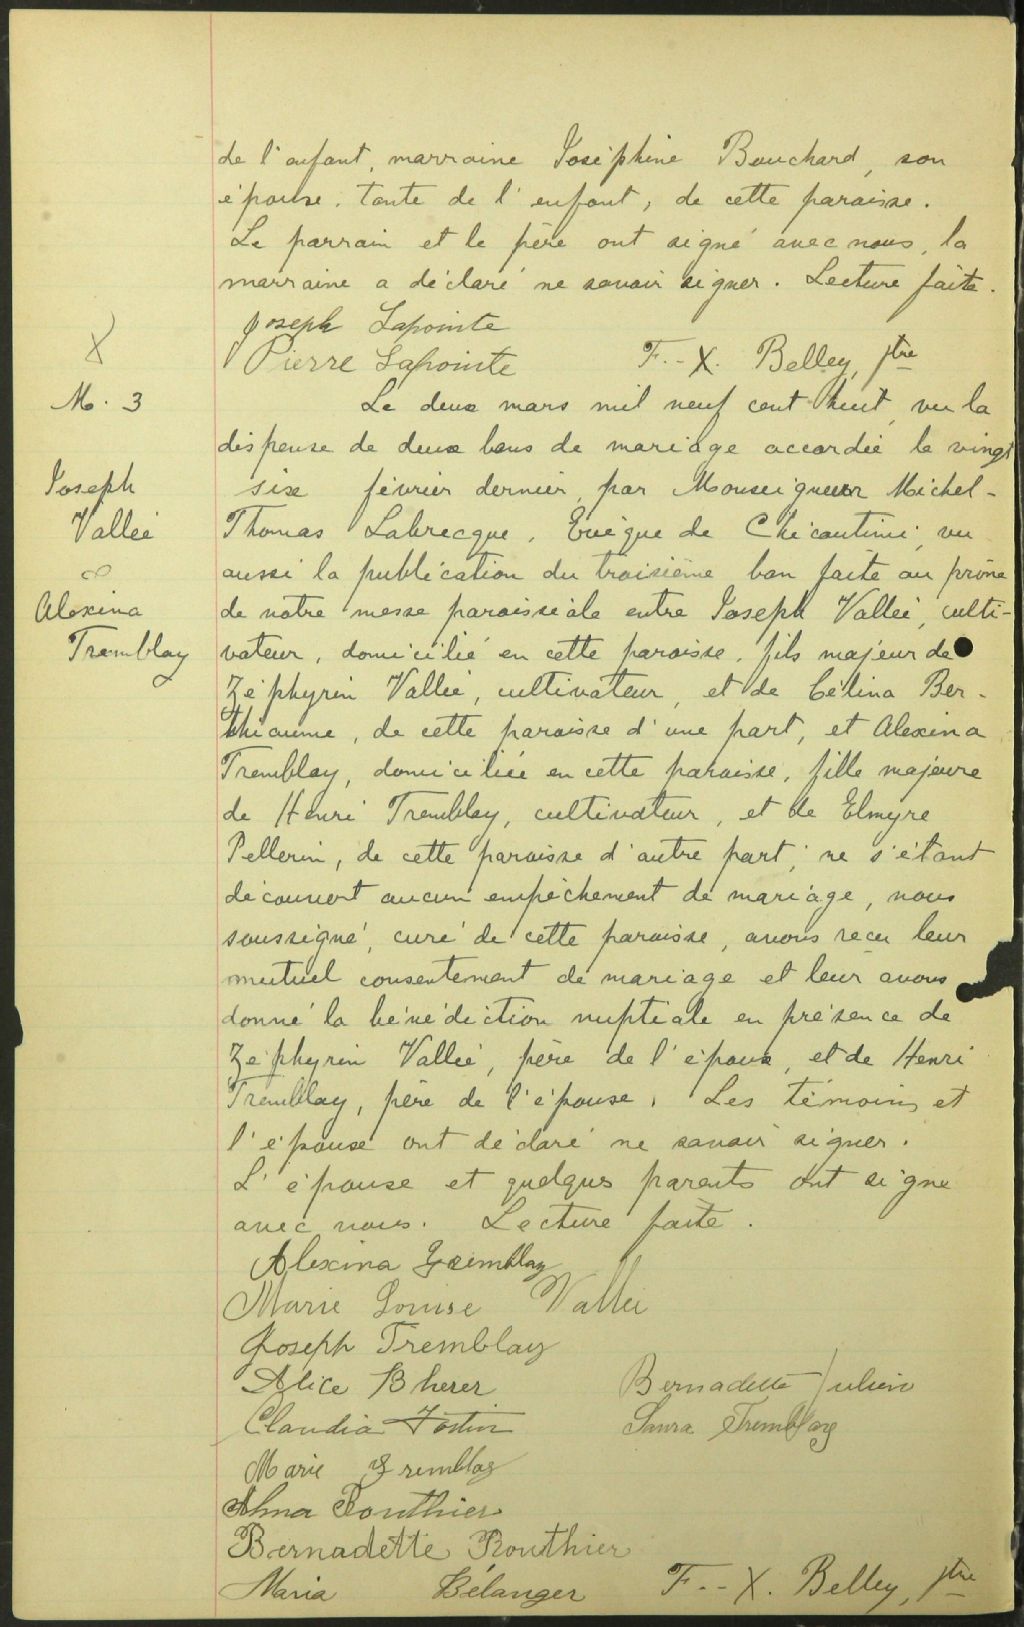 de l'enfant, marraine Joséphine Bouchard, son
épouse, tante de l'enfant, de cette paroisse.
Le parrain et le père ont signé avec nous, la
marraine a déclaré ne savoir signer. Lecture faite.
Joseph Lapointe
Pierre Lapointe F.-X. Belley, ptre
M. 3
Le deux mars mil neuf cent huit, vu la
dispense de deux bans de mariage accordée le vingt
Joseph
six février dernier, par Monseigneur Michel-
Vallée
Thomas Labrecque, Evêque de Chicoutimi; vu
aussi la publication du troisième ban faite au prône
Alexina
de notre messe paroissiale entre Joseph Vallée, culti-
Tremblay
vateur, domicilié en cette paroisse, fils majeur de
Zéphyrin Vallée, cultivateur, et de Célina Ber-
thiaume, de cette paroisse d'une part, et Alexina
Tremblay, domiciliée en cette paroisse, fille majeure
de Henri Tremblay, cultivateur, et de Elmyre
Pellerin, de cette paroisse d'autre part; ne s'étant
découvert aucun empêchement de mariage, nous
soussigné, curé de cette paroisse, avons reçu leur
mutuel consentement de mariage et leur avons
donné la bénédiction nuptiale en présence de
Zéphyrin Vallée, père de l'époux, et de Henri
Tremblay, père de l'épouse. Les témoins et
l'épouse ont déclaré ne savoir signer.
L'épouse et quelques parents ont signé
avec nous. Lecture faite.
Alexina Tremblay
Marie Louise Vallée
Joseph Tremblay
Alice Bherer Bernadette Julien
Claudia Fortin Laura Tremblay
Marie Tremblay
Alma Routhier
Bernadette Routhier
Maria Bélanger F.-X. Belley, ptre